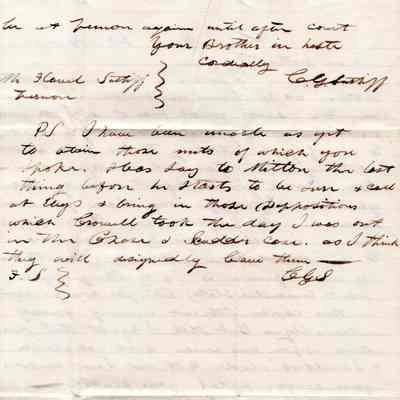 be at Vernon again until after court
Your Brother in haste
Cordially
Mr Flavel Sutliff
Vernon
PS I have been unable as yet
to obtain those nuts of which you
spoke. Also say to Milton the last
thing before he starts to be sure & call
at & bring in those depositions
which Crowell took the day I was out
in the Chase & Scudder case. as I think
they will designedly leave them
F. S
CGS